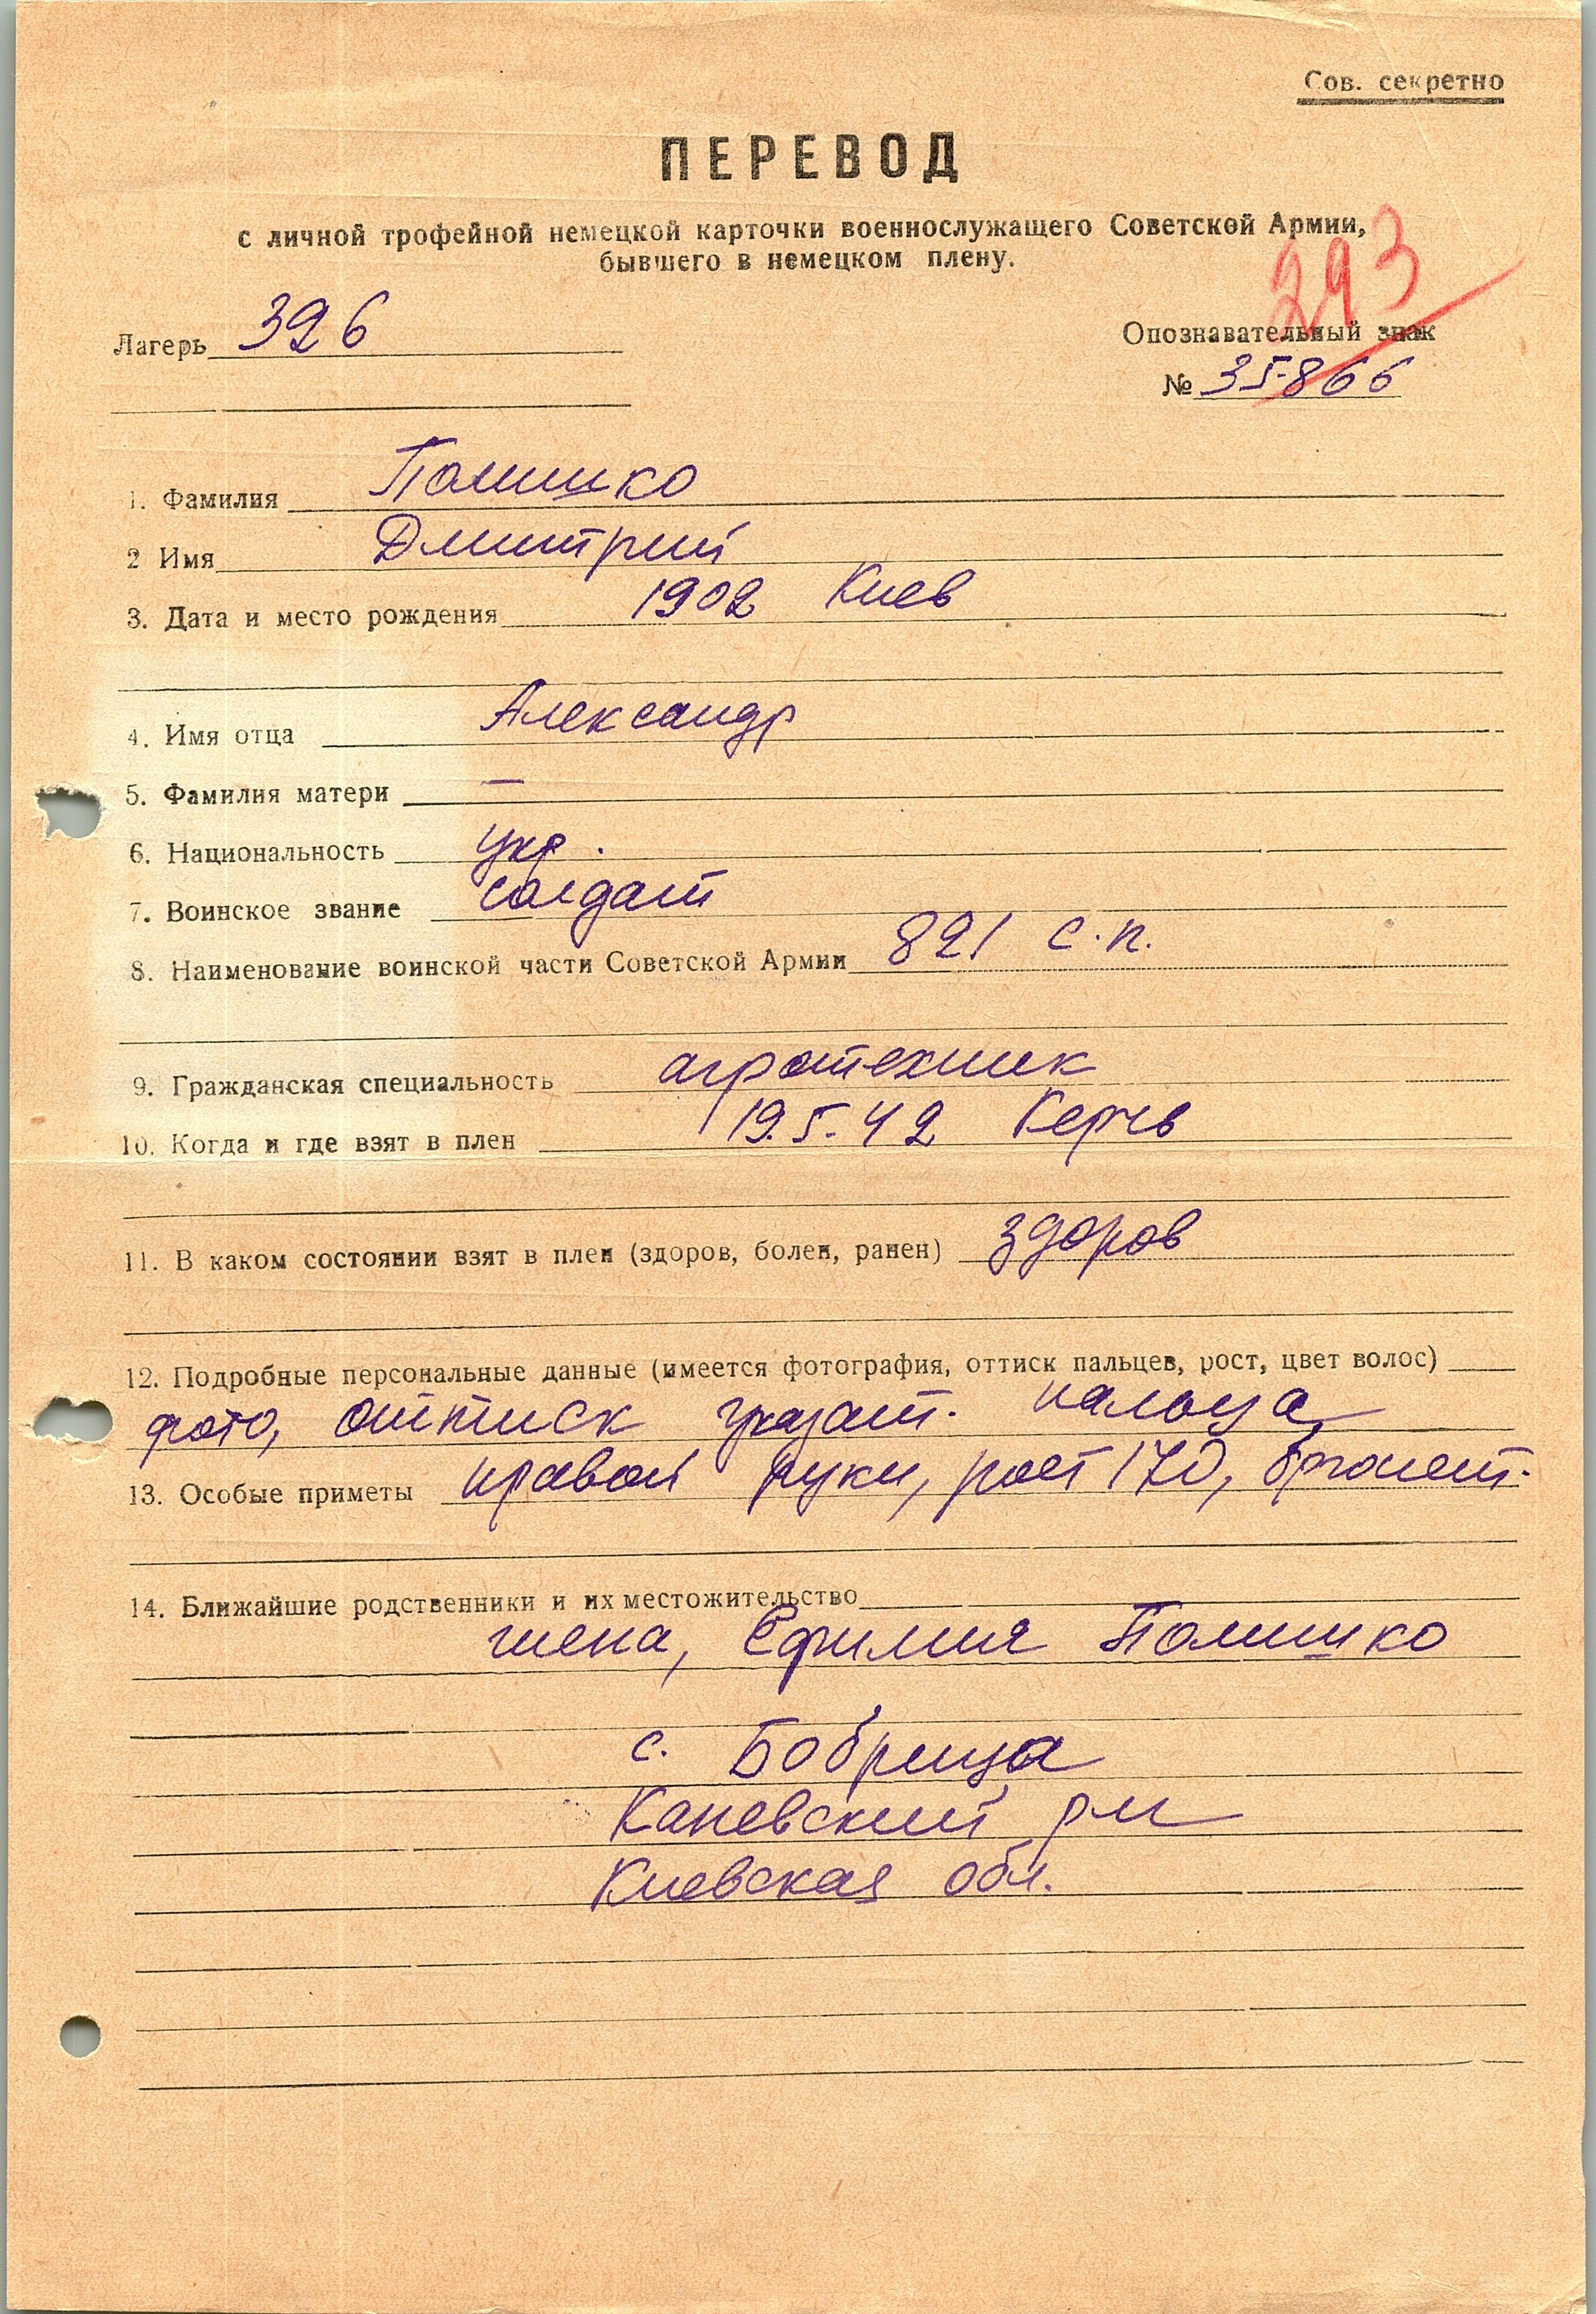 Сов. секретно
ПЕРЕВОД
с личной трофейной немецкой карточки военнослужащего Советской Армии,
бывшего в немецком плену.
293
Лагерь 326
Опознавательный знак
№ 35866
1. Фамилия Полишко
2 Имя Дмитрий
3. Дата и место рождения 1902 Киев
4. Имя отца Александр
5. Фамилия матери —
6. Национальность укр.
7. Воинское звание солдат
8. Наименование воинской части Советской Армии 821 с.п.
9. Гражданская специальность агротехник
10. Когда и где взят в плен 19.5.42 Керчь
11. В каком состоянии взят в плен (здоров, болен, ранен) здоров
12. Подробные персональные данные (имеется фотография, оттиск пальцев, рост, цвет волос)
фото, оттиск указат. пальца
13. Особые приметы правой руки, рост 170, брюнет.
14. Ближайшие родственники и их местожительство
жена, Ефимия Полишко
с. Бобрица
Каневский р-н
Киевская обл.